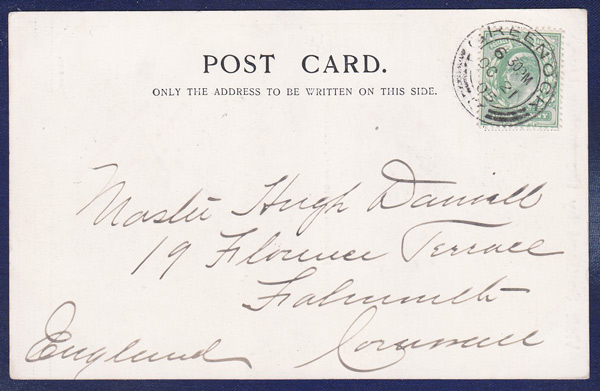 POST CARD.
ONLY THE ADDRESS TO BE WRITTEN ON THIS SIDE.
GREENOCK
6 30PM
OC 2
05
Master Hugh Daniell
19 Florence Terrace
Falmouth
England Cornwall